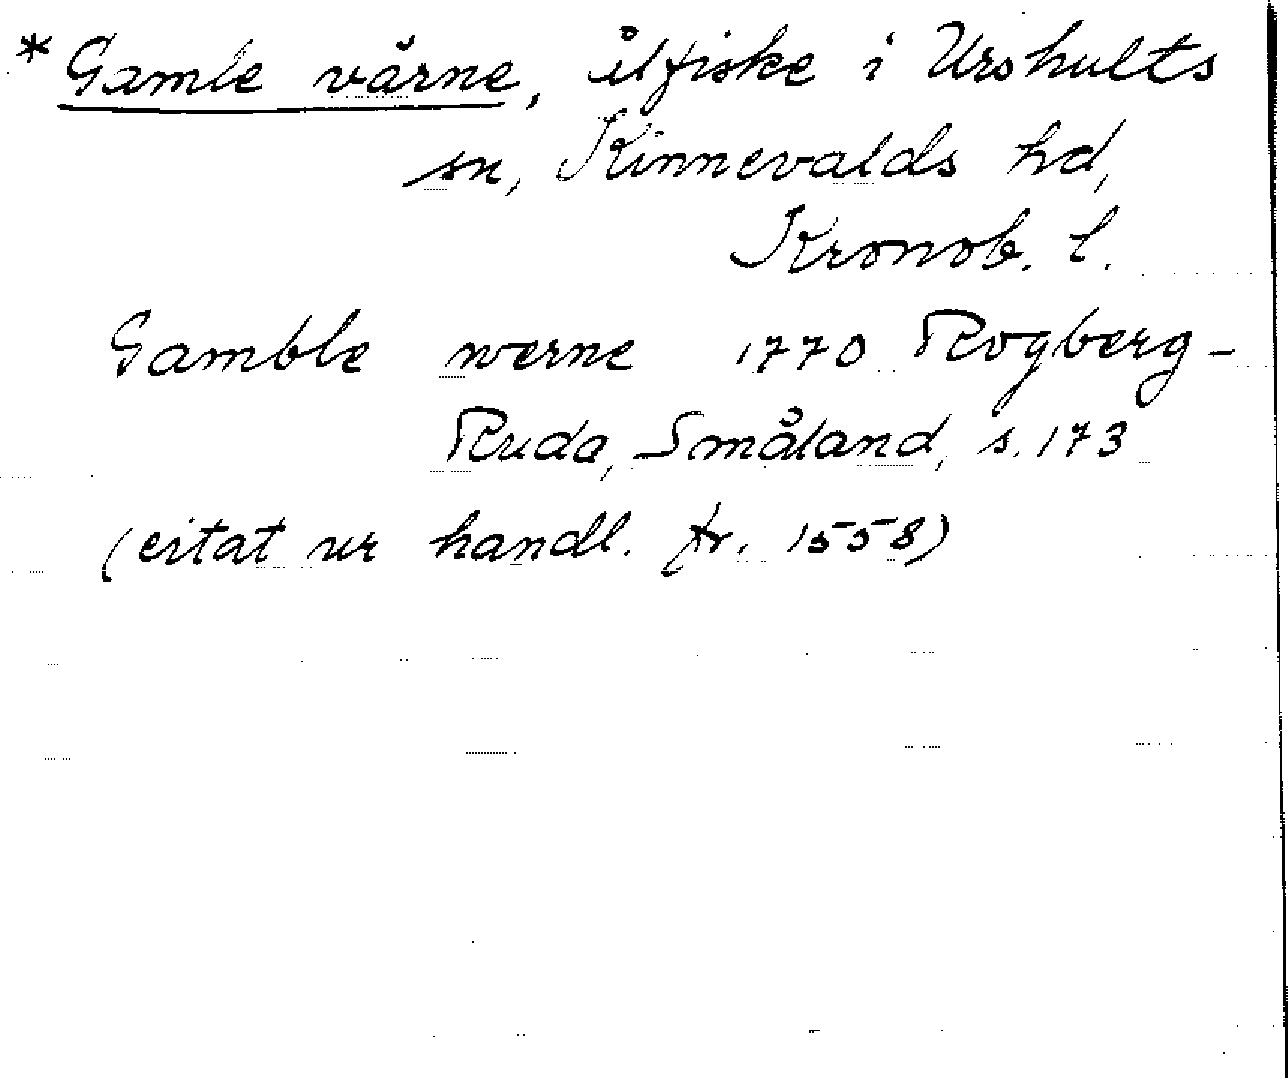 * Gamle värne, ålfiske i Urshults
sn, Kinnevalds hd,
Kronob. l.
Gamble werne 1770 Rogberg-
Ruda, Småland, s. 173
(citat ur handl. fr. 1558)